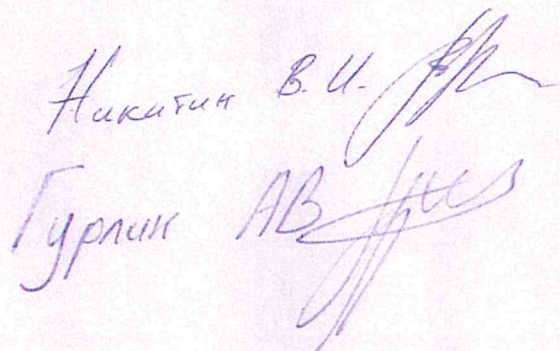 Никитин В.И.
Гурлик АВ